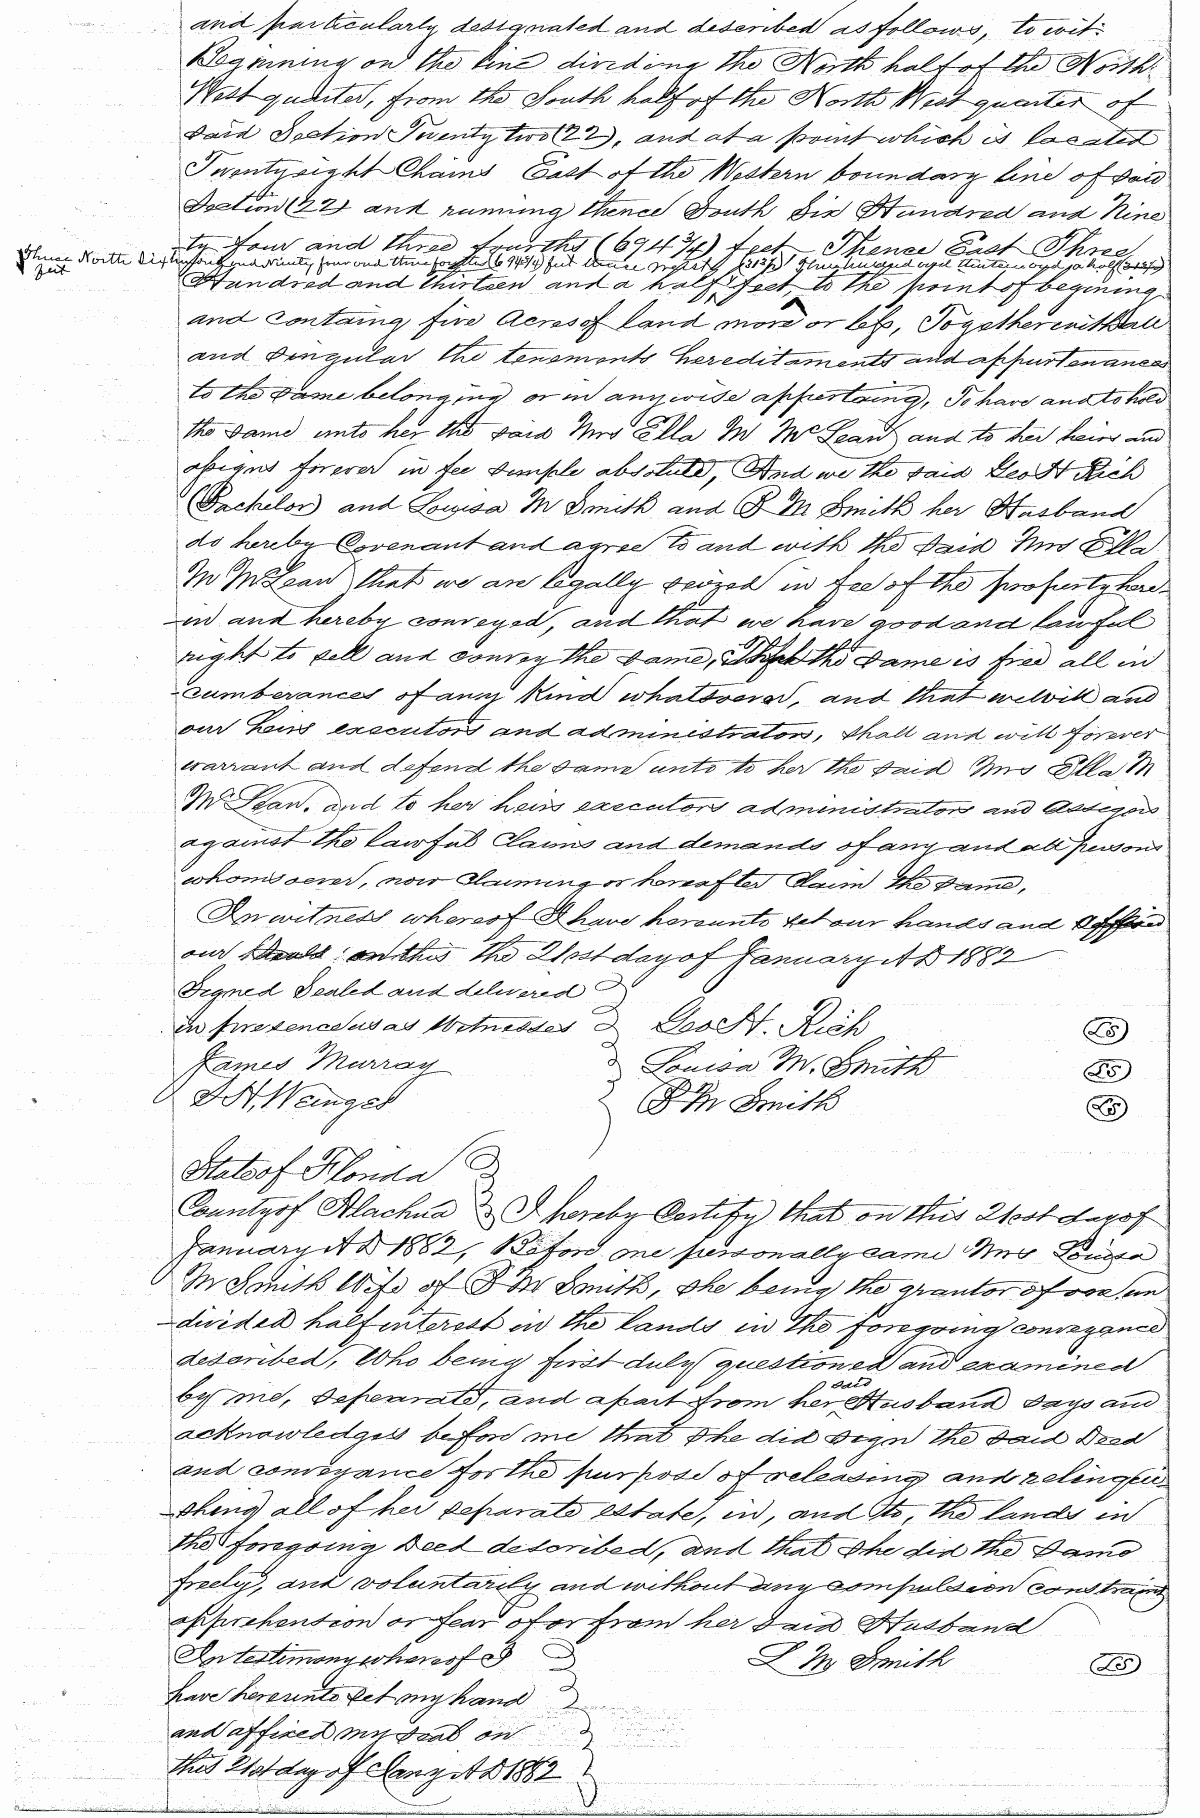 and particularly designated and described as follows, to wit:
Beginning on the line dividing the North half of the North
West quarter, from the South half of the North West quarter of
said Section Twenty two (22), and at a point which is located
Twentyeight Chains East of the Western boundary line of said
Section (22) and running thence South Six Hundred and Nine
ty four and three fourths (694 3/4) feet Thence East Three
Thence North Six hundred and Ninety four and three fourths (694 3/4) feet thence West (313 1/2) Three hundred and thirteen and a half (313 1/2)
feet
Hundred and thirteen and a half feet, to the point of begining
and containg five Acres of land more or less, Together with all
and singular the tenements hereditaments and appurtenances
to the same belonging or in anywise appertaing, To have and to hold
the same unto her the said Mrs Ella M McLean and to her heirs and
assigns forever in fee simple absolute, And we the said Geo H Rich
(Bachelor) and Louisa M Smith and B M Smith her Husband
do hereby Covenant and agree to and with the said Mrs Ella
M McLean that we are legally seized in fee of the property here-
in and hereby conveyed, and that we have good and lawful
right to sell and convey the same, That the same is free all in
cumberances of any kind whatsoever, and that we will and
our heirs executors and administrators, shall and will forever
warrant and defend the same unto to her the said Mrs Ella M
McLean. and to her heirs executors administrators and Assigns
against the lawful Claims and demands of any and all persons
whomsoever, now Claiming or hereafter Claim the same,
In witness whereof I have hereunto set our hands and affixed
our Seals on this the 21st day of January A D 1882
Signed Sealed and delivered
in presence us as Witnesses Geo H. Rich LS
James Murray Louisa M. Smith LS
B M Smith LS
State of Florida
County of Alachua I hereby Certify that on this 21st day of
January A D 1882, Before me personally came Mrs Louisa
M Smith Wife of B M Smith, she being the grantor of one un
divided half interest in the lands in the foregoing conveyance
described, Who being first duly questioned and examined
by me, seperate, and apart from her said Husband says and
acknowledges before me that she did sign the said Deed
and conveyance for the purpose of releasing and relinqui
shing all of her separate estate, in, and to, the lands in
the foregoing Deed described, and that she did the same
freely, and voluntarily and without any compulsion constraint
apprehension or fear of or from her said Husband
In testimony whereof I L M Smith LS
have hereunto set my hand
and affixed my seal on
this 21st day of Jany A D 1882